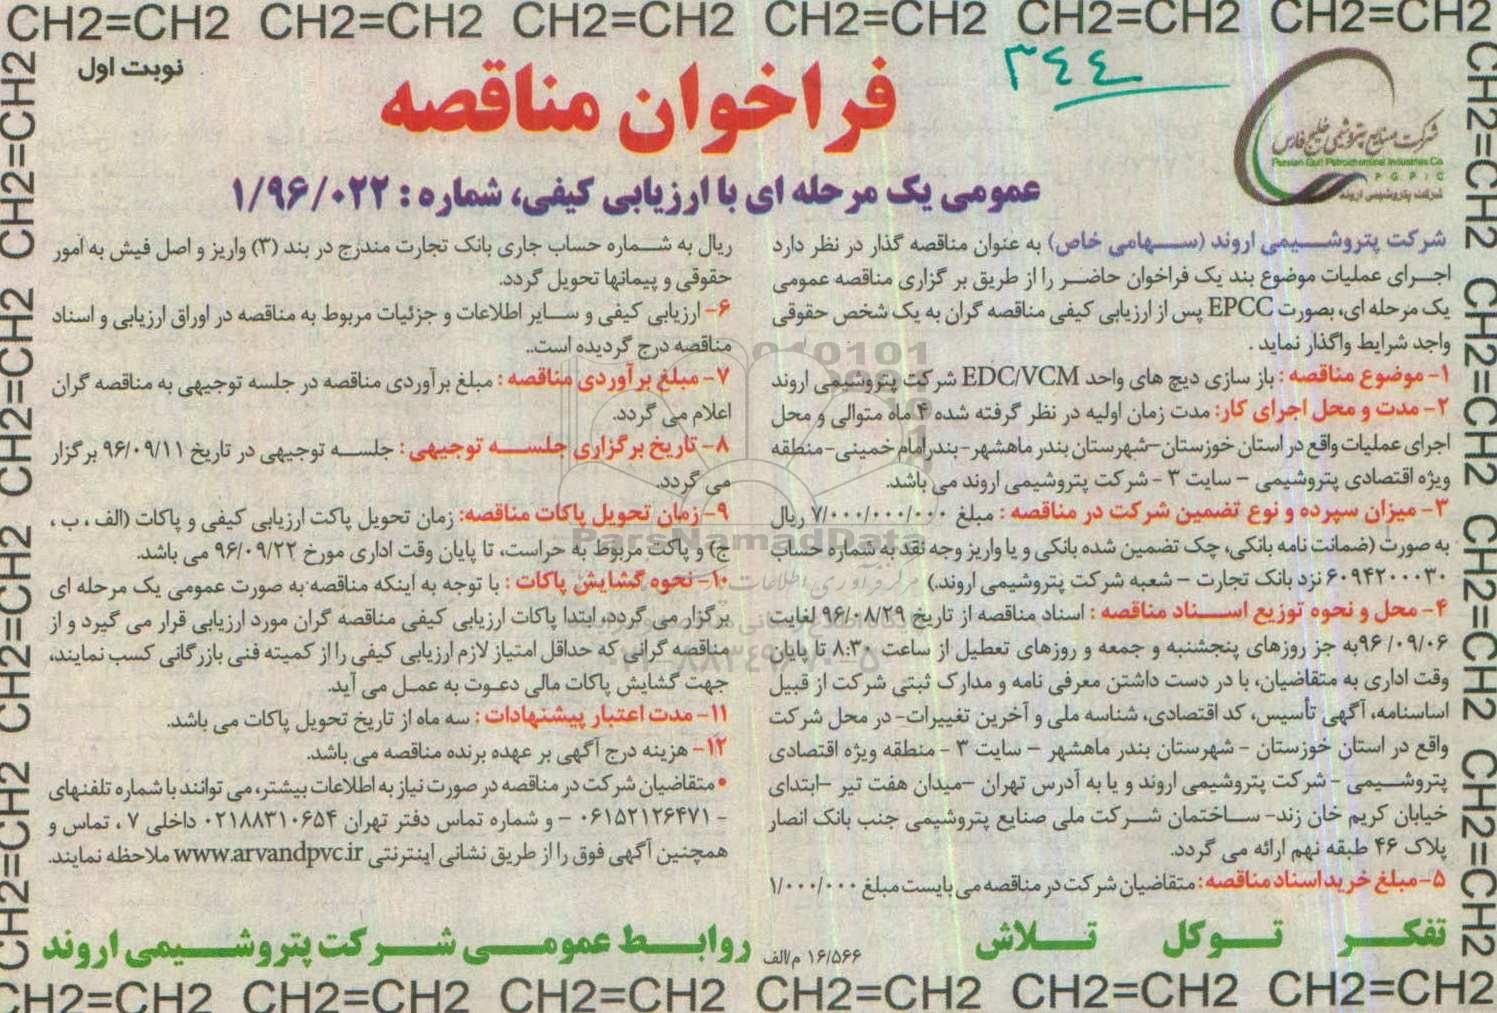 CH2=CH2 CH2=CH2 CH2=CH2 CH2=CH2 CH2=CH2 CH2=CH2
نوبت اول
۳۴۴
فراخوان مناقصه
شرکت صنایع پتروشیمی خلیج فارس
Persian Gulf Petrochemical Industries Co
P G P I C
شرکت پتروشیمی اروند
عمومی یک مرحله ای با ارزیابی کیفی، شماره : ۱/۹۶/۰۲۲
شرکت پتروشیمی اروند (سهامی خاص) به عنوان مناقصه گذار در نظر دارد
اجرای عملیات موضوع بند یک فراخوان حاضر را از طریق بر گزاری مناقصه عمومی
یک مرحله ای، بصورت EPCC پس از ارزیابی کیفی مناقصه گران به یک شخص حقوقی
واجد شرایط واگذار نماید .
۱- موضوع مناقصه : باز سازی دیچ های واحد EDC/VCM شرکت پتروشیمی اروند
۲- مدت و محل اجرای کار: مدت زمان اولیه در نظر گرفته شده ۴ ماه متوالی و محل
اجرای عملیات واقع در استان خوزستان –شهرستان بندر ماهشهر- بندرامام خمینی- منطقه
ویژه اقتصادی پتروشیمی – سایت ۳ - شرکت پتروشیمی اروند می باشد.
۳- میزان سپرده و نوع تضمین شرکت در مناقصه : مبلغ ۷/۰۰۰/۰۰۰/۰۰۰ ریال
به صورت (ضمانت نامه بانکی، چک تضمین شده بانکی و یا واریز وجه نقد به شماره حساب
۶۰۹۴۲۰۰۰۳۰ نزد بانک تجارت – شعبه شرکت پتروشیمی اروند.)
۴- محل و نحوه توزیع اسناد مناقصه : اسناد مناقصه از تاریخ ۹۶/۰۸/۲۹ لغایت
۹۶/۰۹/۰۶ به جز روزهای پنجشنبه و جمعه و روزهای تعطیل از ساعت ۸:۳۰ تا پایان
وقت اداری به متقاضیان، با در دست داشتن معرفی نامه و مدارک ثبتی شرکت از قبیل
اساسنامه، آگهی تأسیس، کد اقتصادی، شناسه ملی و آخرین تغییرات- در محل شرکت
واقع در استان خوزستان - شهرستان بندر ماهشهر – سایت ۳ - منطقه ویژه اقتصادی
پتروشیمی - شرکت پتروشیمی اروند و یا به آدرس تهران –میدان هفت تیر –ابتدای
خیابان کریم خان زند- ساختمان شرکت ملی صنایع پتروشیمی جنب بانک انصار
پلاک ۴۶ طبقه نهم ارائه می گردد.
۵-مبلغ خرید اسناد مناقصه: متقاضیان شرکت در مناقصه می بایست مبلغ ۱/۰۰۰/۰۰۰
ریال به شماره حساب جاری بانک تجارت مندرج در بند (۳) واریز و اصل فیش به امور
حقوقی و پیمانها تحویل گردد.
۶- ارزیابی کیفی و سایر اطلاعات و جزئیات مربوط به مناقصه در اوراق ارزیابی و اسناد
مناقصه درج گردیده است..
۷- مبلغ بر آوردی مناقصه : مبلغ بر آوردی مناقصه در جلسه توجیهی به مناقصه گران
اعلام می گردد.
۸- تاریخ برگزاری جلسه توجیهی : جلسه توجیهی در تاریخ ۹۶/۰۹/۱۱ بر گزار
می گردد.
۹- زمان تحویل پاکات مناقصه: زمان تحویل پاکت ارزیابی کیفی و پاکات (الف ، ب ،
ج) و پاکت مربوط به حراست، تا پایان وقت اداری مورخ ۹۶/۰۹/۲۲ می باشد.
۱۰- نحوه گشایش پاکات : با توجه به اینکه مناقصه به صورت عمومی یک مرحله ای
برگزار می گردد، ابتدا پاکات ارزیابی کیفی مناقصه گران مورد ارزیابی قرار می گیرد و از
مناقصه گرانی که حداقل امتیاز لازم ارزیابی کیفی را از کمیته فنی بازرگانی کسب نمایند،
جهت گشایش پاکات مالی دعوت به عمل می آید.
۱۱- مدت اعتبار پیشنهادات : سه ماه از تاریخ تحویل پاکات می باشد.
۱۲- هزینه درج آگهی بر عهده برنده مناقصه می باشد.
• متقاضیان شرکت در مناقصه در صورت نیاز به اطلاعات بیشتر، می توانند با شماره تلفنهای
- ۰۶۱۵۲۱۲۶۴۷۱ – و شماره تماس دفتر تهران ۰۲۱۸۸۳۱۰۶۵۴ داخلی ۷ ، تماس و
همچنین آگهی فوق را از طریق نشانی اینترنتی www.arvandpvc.ir ملاحظه نمایند.
ParsNamadData
تفکر توکل تلاش
۱۶/۵۶۶ م/الف
روابط عمومی شرکت پتروشیمی اروند
CH2=CH2 CH2=CH2 CH2=CH2 CH2=CH2 CH2=CH2 CH2=CH2
CH2=CH2 CH2=CH2 CH2=CH2 CH2=CH2
CH2=CH2 CH2=CH2 CH2=CH2 CH2=CH2